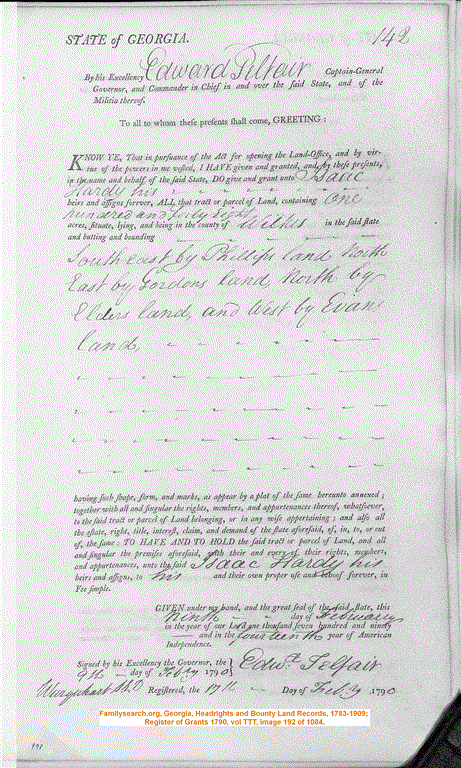 STATE of GEORGIA.
142
By his Excellency Edward Telfair Captain-General
Governor, and Commander in Chief in and over the said State, and of the
Militia thereof.
To all to whom these presents shall come, GREETING :
KNOW YE, That in pursuance of the Act for opening the Land-Office, and by vir-
tue of the powers in me vested, I HAVE given and granted, and, by these presents,
in the name and behalf of the said State, DO give and grant unto Isaac
Hardy his
heirs and assigns forever, ALL that tract or parcel of Land, containing One
hundred and forty eight
acres, situate, lying, and being in the county of Wilkes in the said state
and butting and bounding
South east by Phillips land North
East by Gordons land, North by
Elders land, and West by Evans
land,
having such shape, form, and marks, as appear by a plat of the same hereunto annexed ;
together with all and singular the rights, members, and appurtenances thereof, whatsoever,
to the said tract or parcel of Land belonging, or in any wise appertaining ; and also all
the estate, right, title, interest, claim, and demand of the state aforesaid, of, in, to, or out
of, the same : TO HAVE AND TO HOLD the said tract or parcel of Land, and all
and singular the premises aforesaid, with their and every of their rights, members,
and appurtenances, unto the said Isaac Hardy his
heirs and assigns, to his and their own proper use and behoof forever, in
Fee simple.
GIVEN under my hand, and the great seal of the said state, this
Ninth day of February
in the year of our Lord one thousand seven hundred and ninety
and in the fourteenth year of American
Independence.
Signed by his Excellency the Governor, the
9th day of Feby 1790
Edwd Telfair
Registered, the 17th Day of Feby 1790
Familysearch.org, Georgia, Headrights and Bounty Land Records, 1783-1909;
Register of Grants 1790, vol TTT, image 192 of 1084.